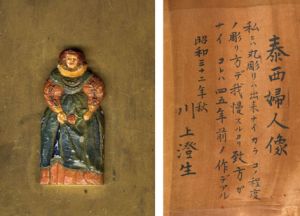 泰西婦人像
私ハ丸彫リハ出来ナイカラ コノ程度
ノ彫リ方デ我慢スルヨリ致方ガ
ナイ コレハ四五年前ノ作デアル
昭和三十二年秋
川上澄生